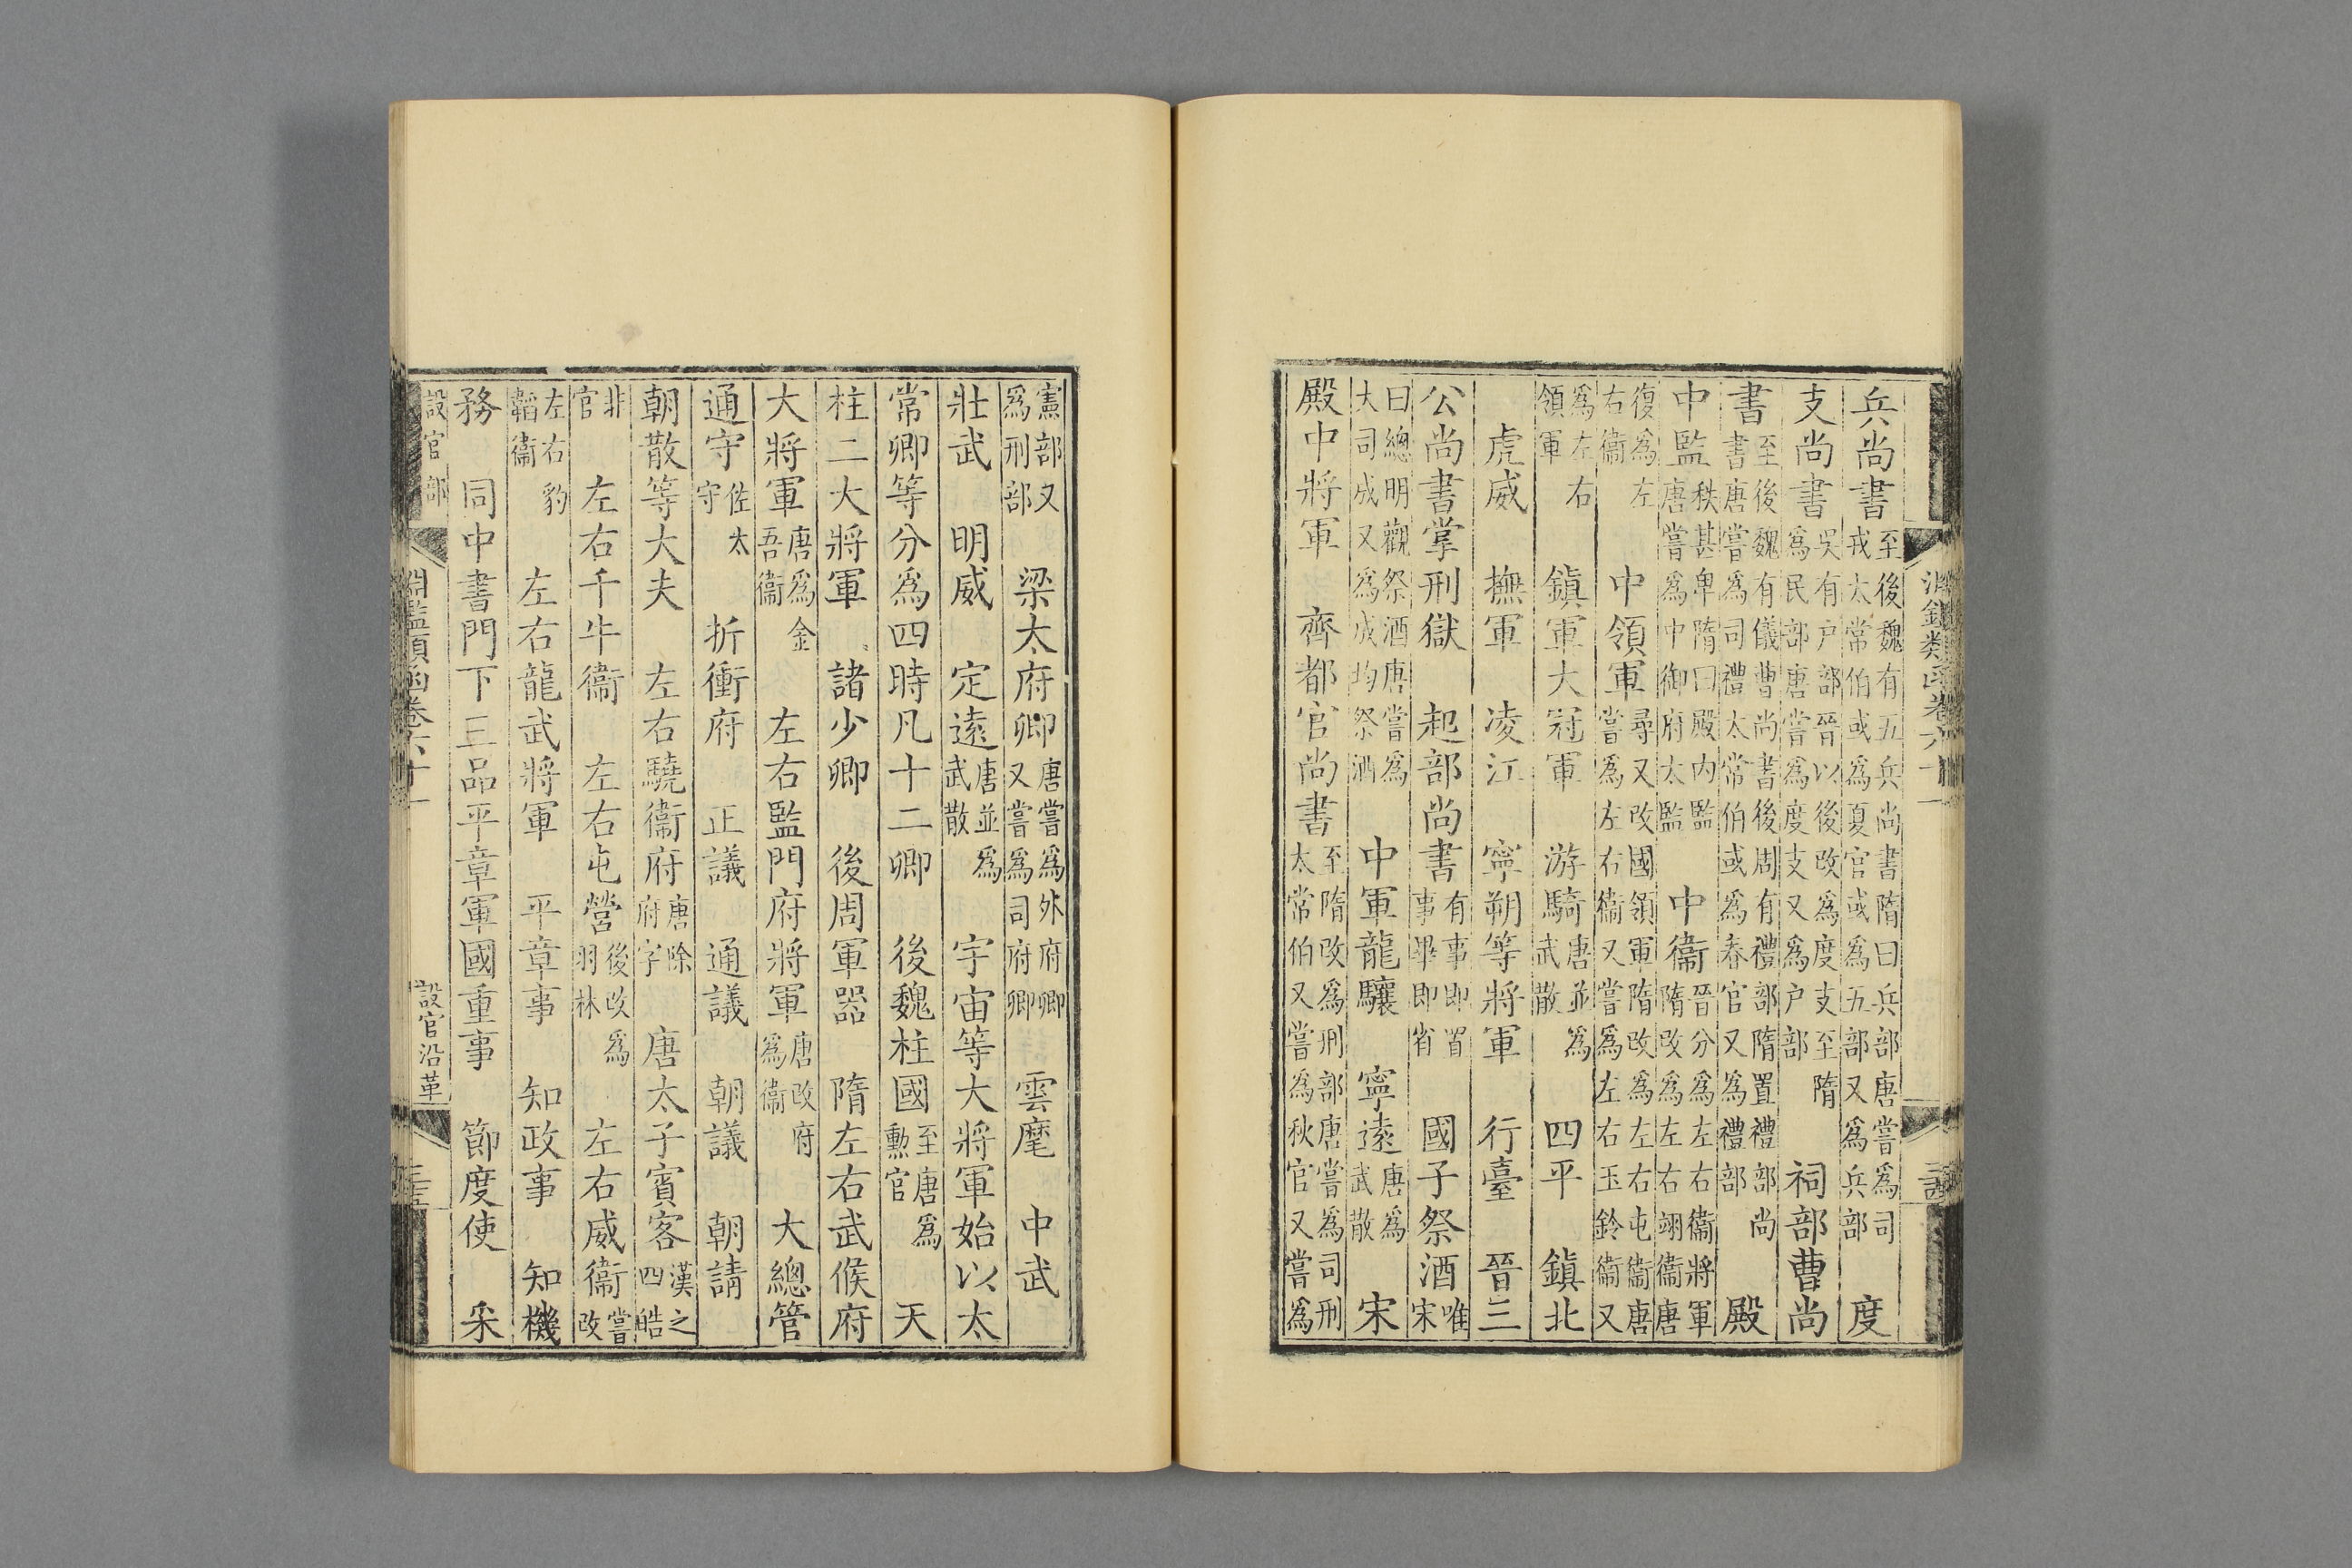 兵尚書至後魏有五兵尚書隋曰兵部唐嘗爲司戎太常伯或爲夏官或爲五部又爲兵部 度
支尚書吳有户部晉以後改爲度支至隋爲民部唐嘗爲度支又爲户部 祠部曹尚
書至後魏有儀曹尚書後周有禮部隋置禮部尚書唐嘗爲司禮太常伯或爲春官又爲禮部 殿
中監秩甚卑隋曰殿内監唐嘗爲中御府太監 中衞晉分爲左右衞將軍隋改爲左右翊衞唐
復爲左右衞 中領軍尋又改國領軍隋改爲左右屯衞唐嘗爲左右衞又嘗爲左右玉鈴衞又
爲左右領軍 鎮軍大冠軍 游騎唐並爲武散 四平 鎮北
虎威 撫軍 凌江 寧朔等將軍 行臺 晉三
公尚書掌刑獄 起部尚書有事即置事畢即省 國子祭酒唯宋
曰總明觀祭酒唐嘗爲大司成又爲成均祭酒 中軍龍驤 寧遠唐爲武散 宋
殿中將軍 齊都官尚書至隋改爲刑部唐嘗爲司刑太常伯又嘗爲秋官又嘗爲
憲部又爲刑部 梁太府卿唐嘗爲外府卿又嘗爲司府卿 雲麾 中武
壯武 明威 定遠唐並爲武散 宇宙等大將軍始以太
常卿等分爲四時凡十二卿 後魏柱國至唐爲勲官 天
柱二大將軍 諸少卿 後周軍器 隋左右武候府
大將軍唐爲金吾衞 左右監門府將軍唐改府爲衞 大總管
通守佐太守 折衝府 正議 通議 朝議 朝請
朝散等大夫 左右驍衞府唐除府字 唐太子賓客漢之四皓
非官 左右千牛衞 左右屯營後改爲羽林 左右威衞嘗改
左右豹韜衞 左右龍武將軍 平章事 知政事 知機
務 同中書門下三品平章軍國重事 節度使 采
設官部 淵鑑類函卷六十一 設官沿革